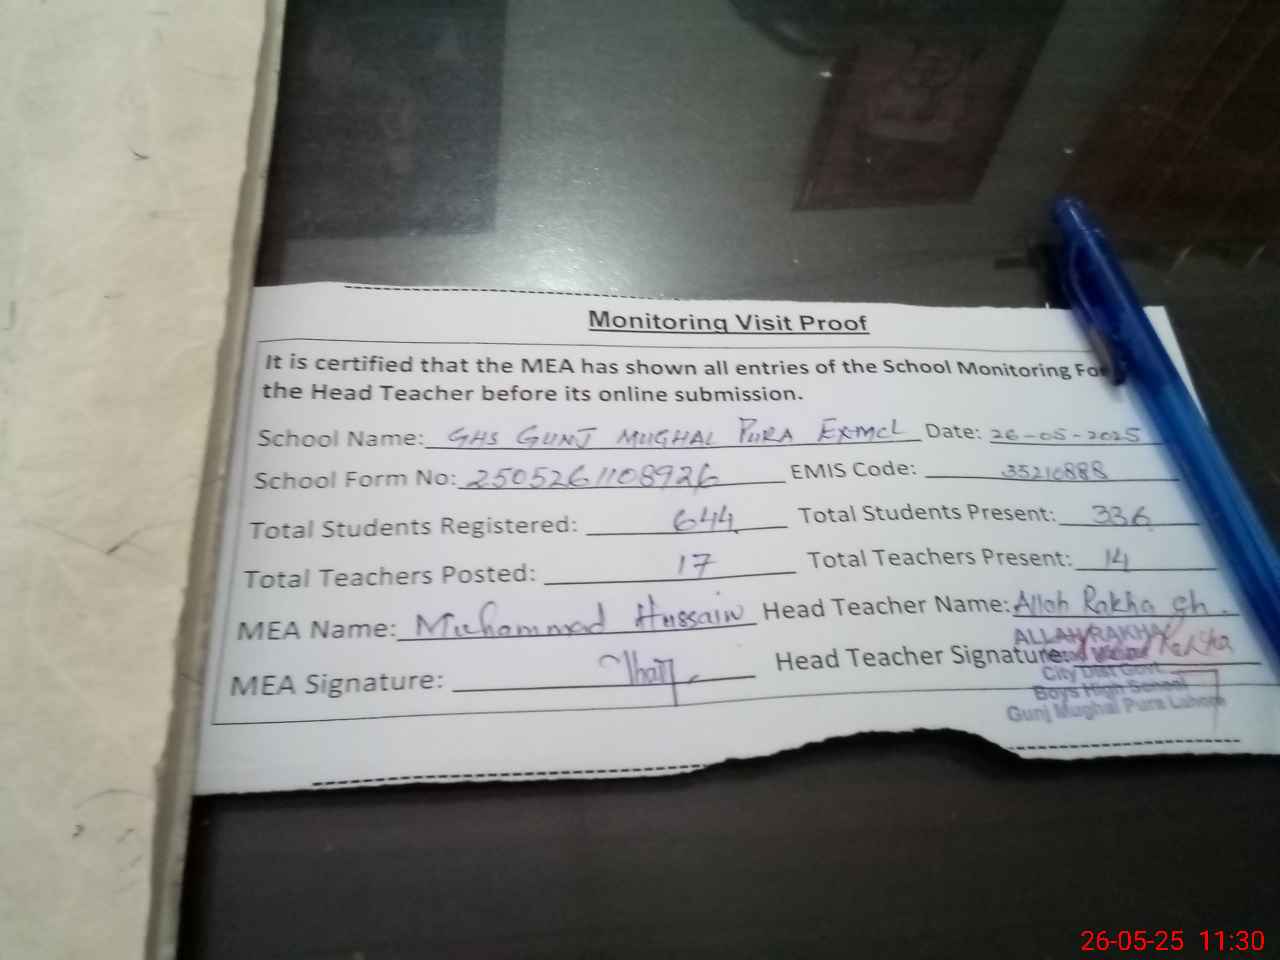 Monitoring Visit Proof
It is certified that the MEA has shown all entries of the School Monitoring Fo
the Head Teacher before its online submission.
School Name: GHS GUNJ MUGHAL PURA EX-MCL Date: 26-05-2025
School Form No: 2505261108926 EMIS Code: 35210888
Total Students Registered: 644 Total Students Present: 336
Total Teachers Posted: 17 Total Teachers Present: 14
MEA Name: Muhammad Hussain Head Teacher Name: Allah Rakha Ch.
MEA Signature: Head Teacher Signature:
ALLAH RAKHA
City Dist Govt
Boys High School
Gunj Mughal Pura Lahore
26-05-25 11:30